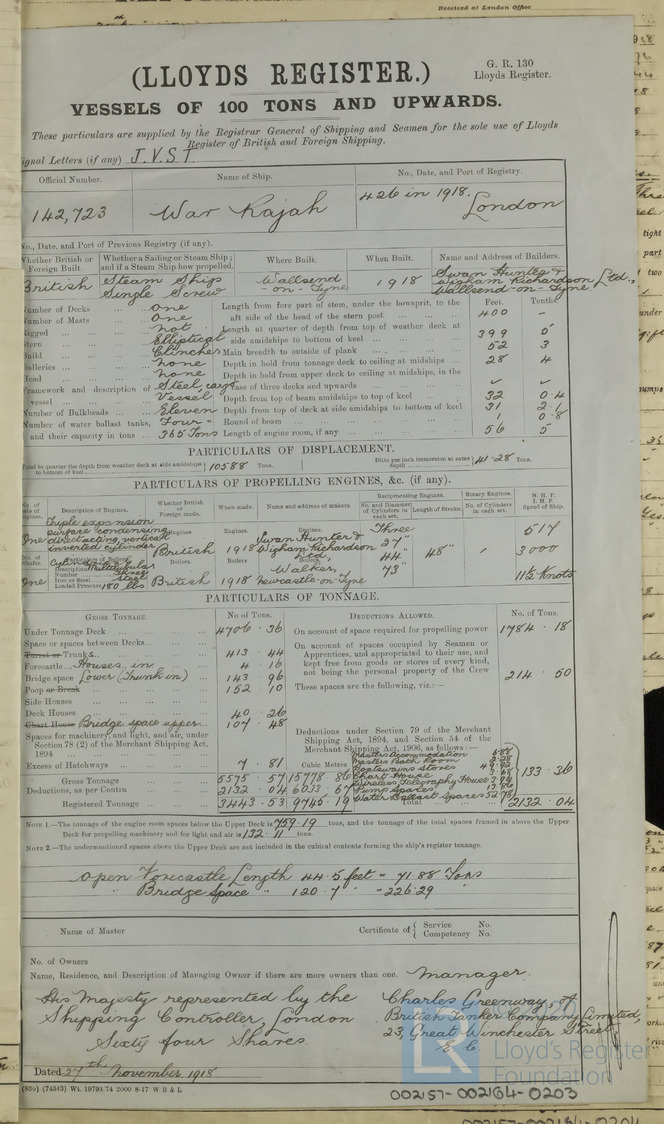 Received at London Office
(LLOYDS REGISTER.)
G. R. 130
Lloyds Register.
VESSELS OF 100 TONS AND UPWARDS.
These particulars are supplied by the Registrar General of Shipping and Seamen for the sole use of Lloyds
Register of British and Foreign Shipping.
ignal Letters (if any) J.V.S.T.
Official Number. Name of Ship. No., Date, and Port of Registry.
142,723 War Rajah 426 in 1918. London
No., Date, and Port of Previous Registry (if any).
Whether British or Foreign Built. Whether a Sailing or Steam Ship; and if a Steam Ship how propelled. Where Built. When Built. Name and Address of Builders.
British Steam Ship Single Screw Wallsend-on-Tyne 1918 Swan Hunter & Wigham Richardson Ltd., Wallsend-on-Tyne
Feet. Tenths
Number of Decks ... One Length from fore part of stem, under the bowsprit, to the aft side of the head of the stern post 400 -
Number of Masts ... One
Rigged ... not Length at quarter of depth from top of weather deck at side amidships to bottom of keel 399 5
Stern ... Elliptical
Build ... Clincher Main breadth to outside of plank 52 3
Galleries ... none Depth in hold from tonnage deck to ceiling at midships 28 4
Head ... none Depth in hold from upper deck to ceiling at midships, in the case of three decks and upwards
Framework and description of vessel ... Steel cargo Vessel
Depth from top of beam amidships to top of keel 32 0.4
Number of Bulkheads ... Eleven Depth from top of deck at side amidships to bottom of keel 31 2.1
Number of water ballast tanks, Four - Round of beam 1 0.8
and their capacity in tons ... 365 Tons Length of engine room, if any 56 5
PARTICULARS OF DISPLACEMENT.
to quarter the depth from weather deck at side amidships to bottom of keel 10588 Tons. Ditto per inch immersion at same depth 41.28 Tons.
PARTICULARS OF PROPELLING ENGINES, &c. (if any).
No. of sets of Engines. Description of Engines. Whether British or Foreign made. When made. Name and address of makers. Reciprocating Engines. Rotary Engines. N.H.P.
No. and Diameter of Cylinders in each set. Length of Stroke. No. of Cylinders in each set. I.M.P. Speed of Ship.
One Triple expansion surface condensing direct acting, vertical inverted cylinder Engines. British Engines. 1918 Engines. Swan Hunter & Wigham Richardson Ltd, Three 27" 44" 73" 48" 517 3000
No. of Shafts. Description of Boilers. Boilers. Boilers. Boilers.
One Cylindrical Multitubular
Number
Iron or Steel Steel
Loaded Pressure 180 lbs British 1918 Walker, Newcastle-on-Tyne 11½ Knots
PARTICULARS OF TONNAGE.
GROSS TONNAGE. No of Tons. DEDUCTIONS ALLOWED. No. of Tons.
Under Tonnage Deck 4706.36 On account of space required for propelling power 1784.18
Space or spaces between Decks
Turret or Trunks 413.44 On account of spaces occupied by Seamen or Apprentices, and appropriated to their use, and kept free from goods or stores of every kind, not being the personal property of the Crew 214.50
Forecastle Houses, in 4.16
Bridge space Lower (Trunk in) 143.96
Poop or Break 152.10 These spaces are the following, viz:—
Side Houses
Deck Houses 40.26
Chart House Bridge space upper 107.48
Spaces for machinery, and light, and air, under Section 78 (2) of the Merchant Shipping Act, 1894
Deductions under Section 79 of the Merchant Shipping Act, 1894, and Section 54 of the Merchant Shipping Act, 1906, as follows:—
Excess of Hatchways 7.81 Cubic Metres
Masters Accommodation 6.88
Masters Bath Room
Boatswains Stores
Chart House
Wireless Telegraphy House
Pump Spaces
Water Ballast Spaces 52.78
133.36
Gross Tonnage 5575.57 15778.86
Deductions, as per Contra 2132.04 6033.67
Registered Tonnage 3443.53 9745.19 Total 2132.04
NOTE 1.—The tonnage of the engine room spaces below the Upper Deck is 759.19 tons, and the tonnage of the total spaces framed in above the Upper
Deck for propelling machinery and for light and air is 132.11 tons.
NOTE 2.—The undermentioned spaces above the Upper Deck are not included in the cubical contents forming the ship's register tonnage.
Open Forecastle Length 44.5 feet = 71.88 Tons
" Bridge space " 120.7 " = 226.29 "
Name of Master Certificate of { Service No.
Competency No.
No. of Owners
Name, Residence, and Description of Managing Owner if there are more owners than one. Manager.
His Majesty represented by the Charles Greenway, of
Shipping Controller, London British Tanker Company Limited,
Sixty four Shares. 23, Great Winchester Street
E C
Dated 27th November 1918
(83o) (74343) Wt. 19793/74 2000 8-17 W B & L
Lloyd's Register
Foundation
002157-002164-0203